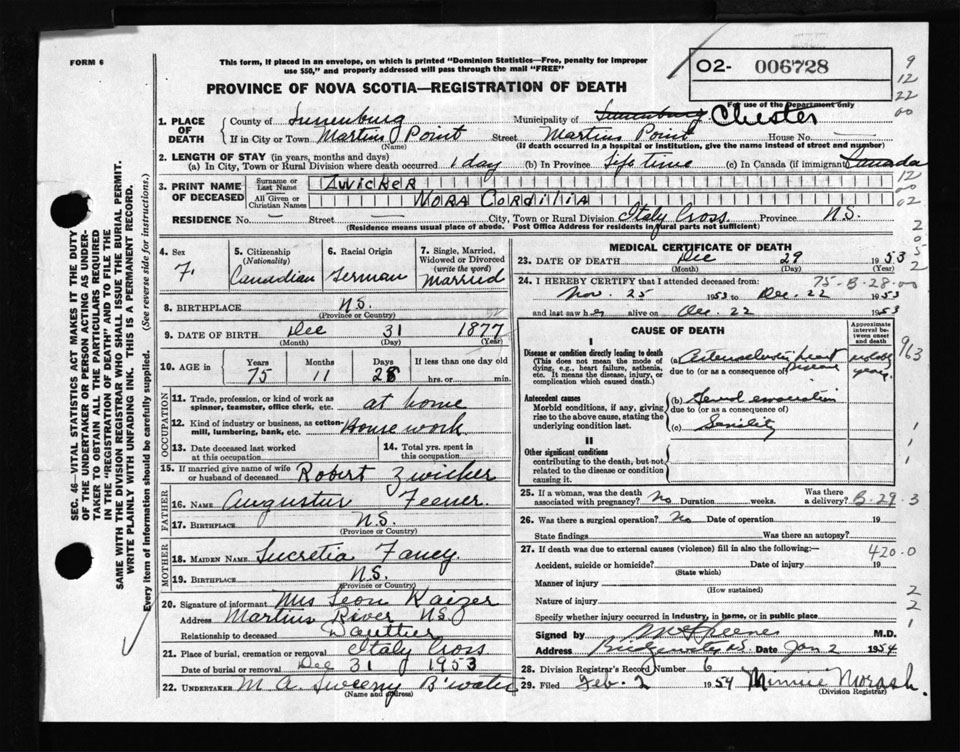 FORM 6
This form, if placed in an envelope, on which is printed "Dominion Statistics—Free, penalty for improper
use $50," and properly addressed will pass through the mail "FREE"
PROVINCE OF NOVA SCOTIA—REGISTRATION OF DEATH
O2- 006728
For use of the Department only
9
12
22
00
SEC. 46—VITAL STATISTICS ACT MAKES IT THE DUTY
OF THE UNDERTAKER OR PERSON ACTING AS UNDER-
TAKER TO OBTAIN ALL THE PARTICULARS REQUIRED
IN THE "REGISTRATION OF DEATH" AND TO FILE THE
SAME WITH THE DIVISION REGISTRAR WHO SHALL ISSUE THE BURIAL PERMIT.
WRITE PLAINLY WITH UNFADING INK. THIS IS A PERMANENT RECORD.
Every item of Information should be carefully supplied. (See reverse side for instructions.)
1. PLACE OF DEATH County of Lunenburg Municipality of Lunenburg Chester
If in City or Town Martins Point Street Martins Point House No.
(Name) (If death occurred in a hospital or Institution, give the name instead of street and number)
2. LENGTH OF STAY (in years, months and days)
(a) In City, Town or Rural Division where death occurred 1 day (b) In Province Life time (c) In Canada (if immigrant) Canada
3. PRINT NAME OF DECEASED Surname or Last Name ZWICKER
All Given or Christian Names NORA CORDILIA
12
00
02
RESIDENCE No. — Street — City, Town or Rural Division Italy Cross Province N.S.
(Residence means usual place of abode. Post Office Address for residents in rural parts not sufficient)
4. Sex F.
5. Citizenship (Nationality) Canadian
6. Racial Origin German
7. Single, Married, Widowed or Divorced (write the word) Married
8. BIRTHPLACE N.S.
(Province or Country)
9. DATE OF BIRTH Dec 31 1877
(Month) (Day) (Year)
10. AGE in Years 75 Months 11 Days 28 If less than one day old
hrs. or min.
OCCUPATION
11. Trade, profession, or kind of work as spinner, teamster, office clerk, etc. at home
12. Kind of industry or business, as cotton-mill, lumbering, bank, etc. House work
13. Date deceased last worked at this occupation
14. Total yrs. spent in this occupation
15. If married give name of wife or husband of deceased Robert Zwicker
FATHER
16. NAME Augustus Feener
17. BIRTHPLACE N.S.
(Province or Country)
MOTHER
18. MAIDEN NAME Lucretia Fancy.
19. BIRTHPLACE N.S.
(Province or Country)
20. Signature of informant Mrs Leon Kaizer
Address Martins River N.S.
Relationship to deceased Daughter
21. Place of burial, cremation or removal Italy Cross
Date of burial or removal Dec 31 1953
22. UNDERTAKER M A. Sweeny B'water
(Name and address)
MEDICAL CERTIFICATE OF DEATH
23. DATE OF DEATH Dec 29 1953
(Month) (Day) (Year)
24. I HEREBY CERTIFY that I attended deceased from: 75-B-28-00
Nov. 25 1953 to Dec. 22 1953
and last saw her alive on Dec. 22 1953
CAUSE OF DEATH
Approximate interval between onset and death
I
Disease or condition directly leading to death
(This does not mean the mode of dying, e.g., heart failure, asthenia, etc. It means the disease, injury, or complication which caused death.)
(a) Arteriosclerotic heart Disease
due to (or as a consequence of)
years.
963
Antecedent causes
Morbid conditions, if any, giving rise to the above cause, stating the underlying condition last.
(b)
due to (or as a consequence of)
(c) Senility
II
Other significant conditions
contributing to the death, but not related to the disease or condition causing it.
25. If a woman, was the death associated with pregnancy? No Duration weeks. Was there a delivery? B-29-3
26. Was there a surgical operation? No Date of operation 19
State findings Was there an autopsy?
27. If death was due to external causes (violence) fill in also the following:— 420-0
Accident, suicide or homicide? Date of injury 19
(State which)
Manner of injury
(How sustained)
Nature of injury
Specify whether injury occurred in industry, in home, or in public place
Signed by M.D.
Address Bridgewater N.S. Date Jan 2 1954
28. Division Registrar's Record Number 6
29. Filed Feb. 2 1954 Minnie Morash.
(Division Registrar)